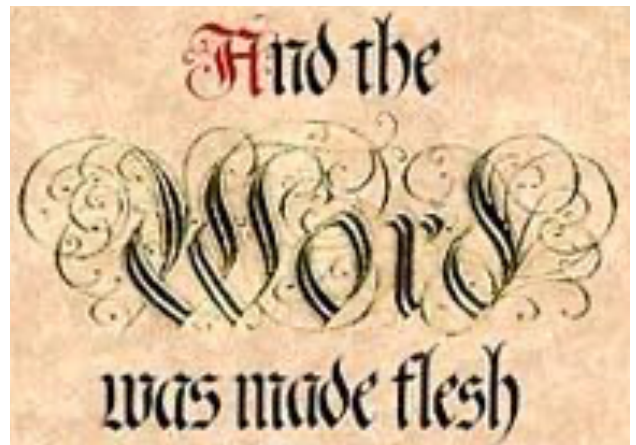 And the
Word
was made flesh